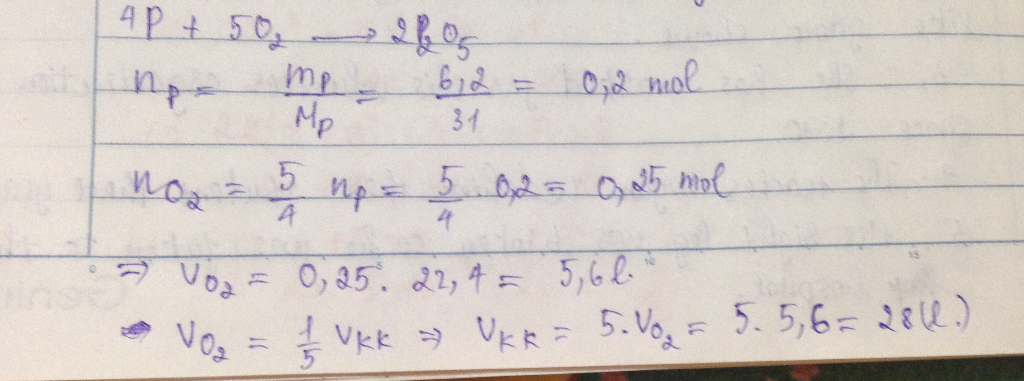 4P + 5O₂ → 2P₂O₅
nP = mP/MP = 6,2/31 = 0,2 mol
nO₂ = 5/4 nP = 5/4 0,2 = 0,25 mol
⇒ VO₂ = 0,25 . 22,4 = 5,6 l.
VO₂ = 1/5 VKK ⇒ VKK = 5.VO₂ = 5. 5,6 = 28(l.)